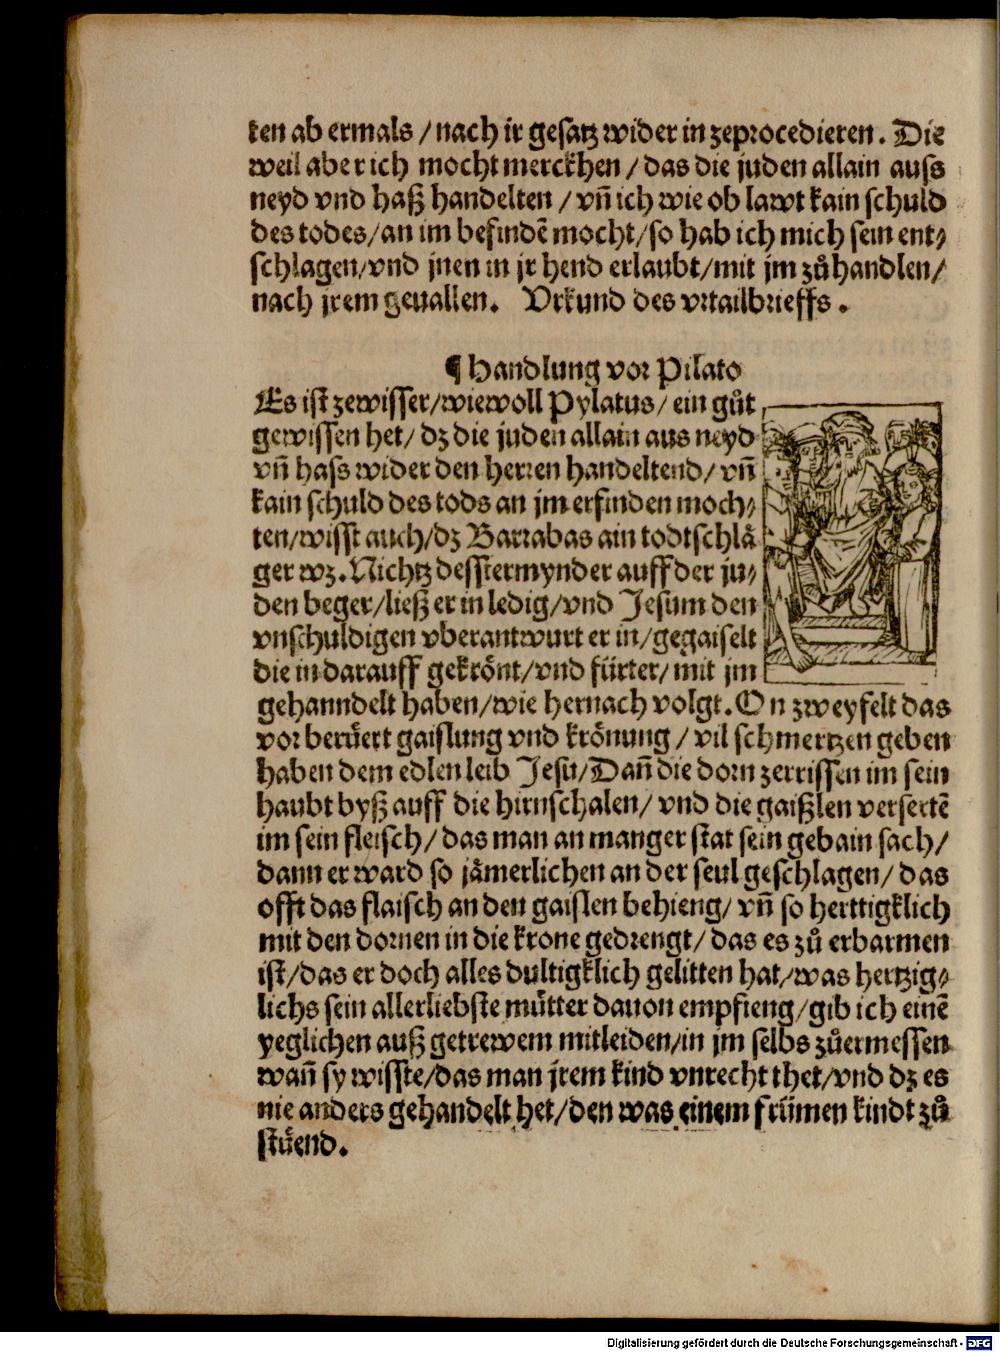 ken ab ermals / nach ir gesatz wider in zeprocedieren. Die
weil aber ich mocht merckhen / das die juden allain auss
neyd vnd haß handelten / vn̄ ich wie ob lawt kain schuld
des todes / an im befindē mocht / so hab ich mich sein ent⸗
schlagen / vnd jnen in jr hend erlaubt / mit jm zů handlen /
nach jrem geuallen. Vrkund des vrtailbrieffs.
¶ Handlung vor Pilato
Es ist zewisser / wiewoll Pylatus / ein gůt
gewissen het / dz die juden allain aus neyd
vn̄ hass wider den herren handeltend / vn̄
kain schuld des tods an jm erfinden moch⸗
ten / wisst auch / dz Barrabas ain todtschlå
ger wz. Nichtz desstermynder auff der ju⸗
den beger / ließ er in ledig / vnd Jesum den
vnschuldigen vberantwurt er in / gegaiselt
die in darauff gekrönt / vnd fürter / mit jm
gehanndelt haben / wie hernach volgt. On zweyfelt das
vor berüert gaislung vnd krönung / vil schmertzen geben
haben dem edlen leib Jesu / Dan̄ die dorn zerrissen im sein
haubt byß auff die hirnschalen / vnd die gaißlen versertē
im sein fleisch / das man an manger stat sein gebain sach /
dann er ward so jämerlichen an der seul geschlagen / das
offt das flaisch an den gaislen behieng / vn̄ so herttigklich
mit den dornen in die krone gedrengt / das es zů erbarmen
ist / das er doch alles dultigklich gelitten hat / was hertzig⸗
lichs sein allerliebste můtter dauon empfieng / gib ich einē
yeglichen auß getrewem mitleiden / in jm selbs zůermessen
wan̄ sy wisste / das man jrem kind vnrecht thet / vnd dz es
nie anders gehandelt het / den was einem frümen kindt zů
stüend.
Digitalisierung gefördert durch die Deutsche Forschungsgemeinschaft - DFG